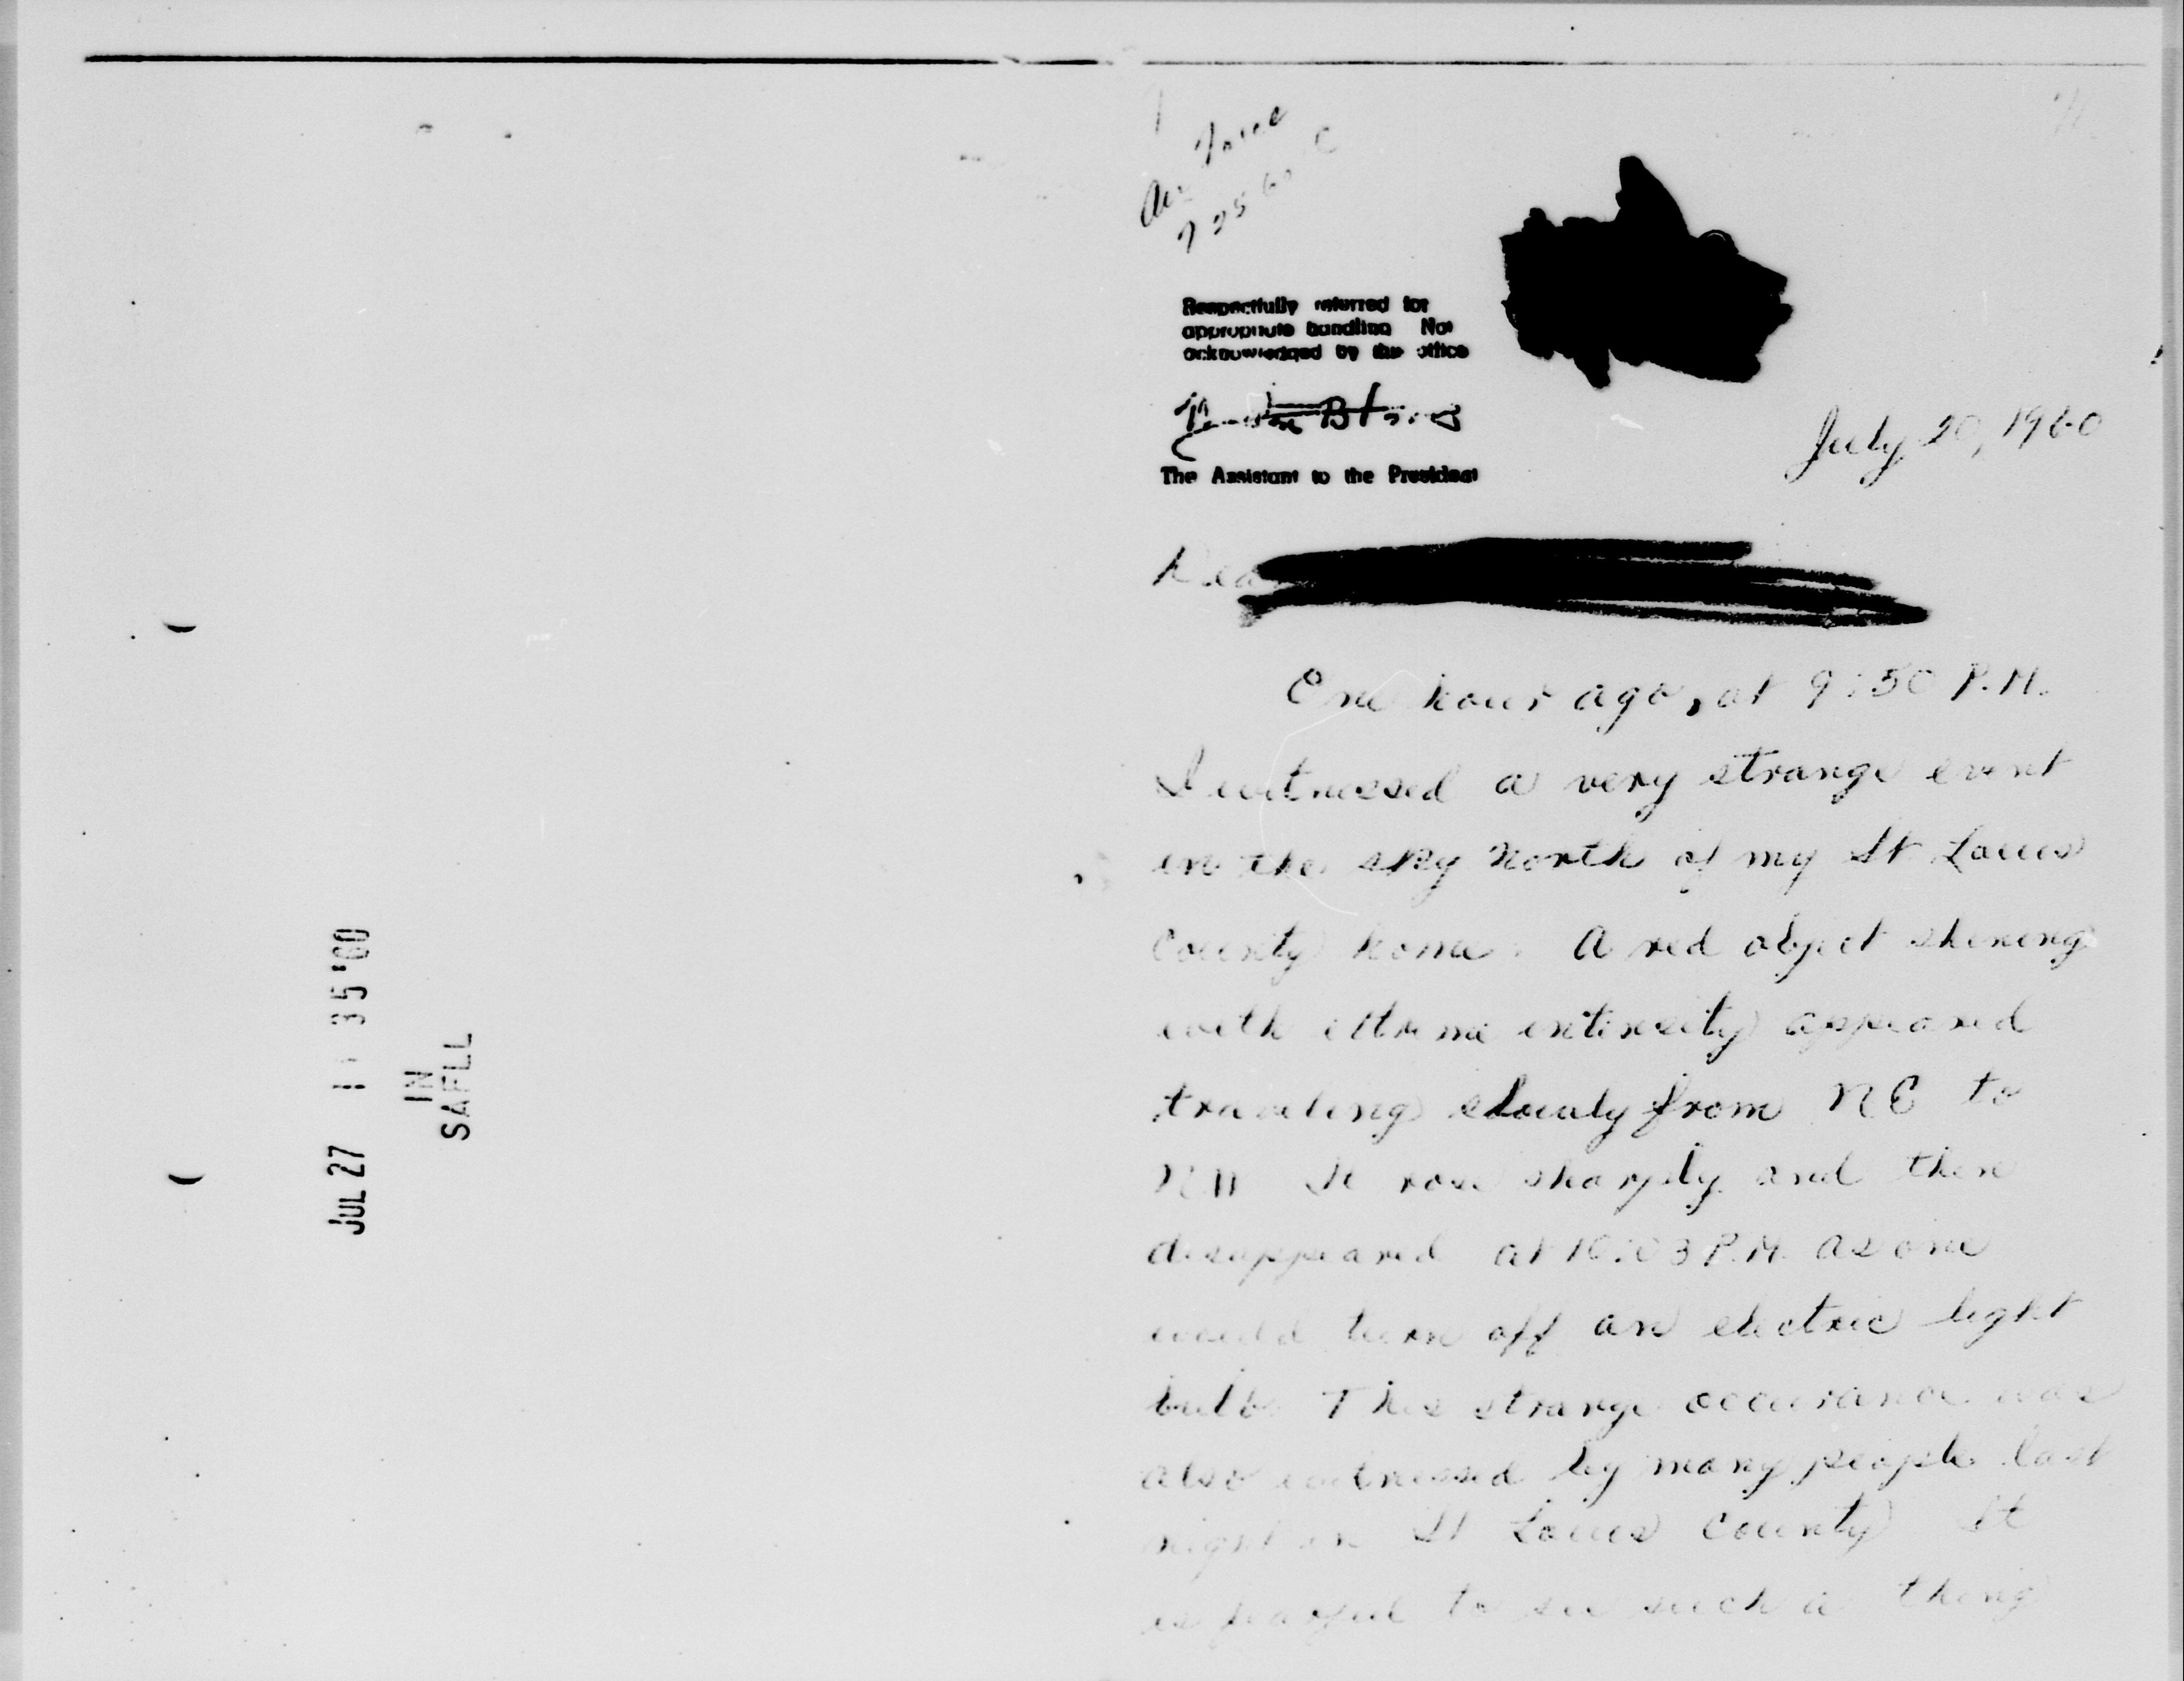 JUL 27 35 '60
IN
SAFLL
Air Force
7 25 60 C
Respectfully referred for
appropriate handling Not
acknowledged by this office
The Assistant to the President
July 20, 1960
Dear
One hour ago, at 9:50 P.M.
I witnessed a very strange event
in the sky North of my St Louis
County home. A red object shining
with extreme intensity appeared
traveling slowly from NE to
NW It rose sharply and then
disappeared at 10:03 P.M. as one
would turn off an electric light
bulb. This strange occurance was
also witnessed by many people last
night in St Louis County It
is fearful to see such a thing